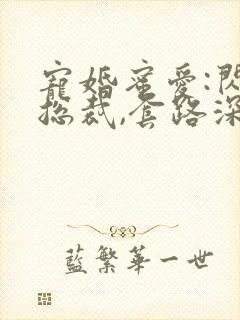 寵婚蜜愛:閃
總裁,套路深
藍繁華一世